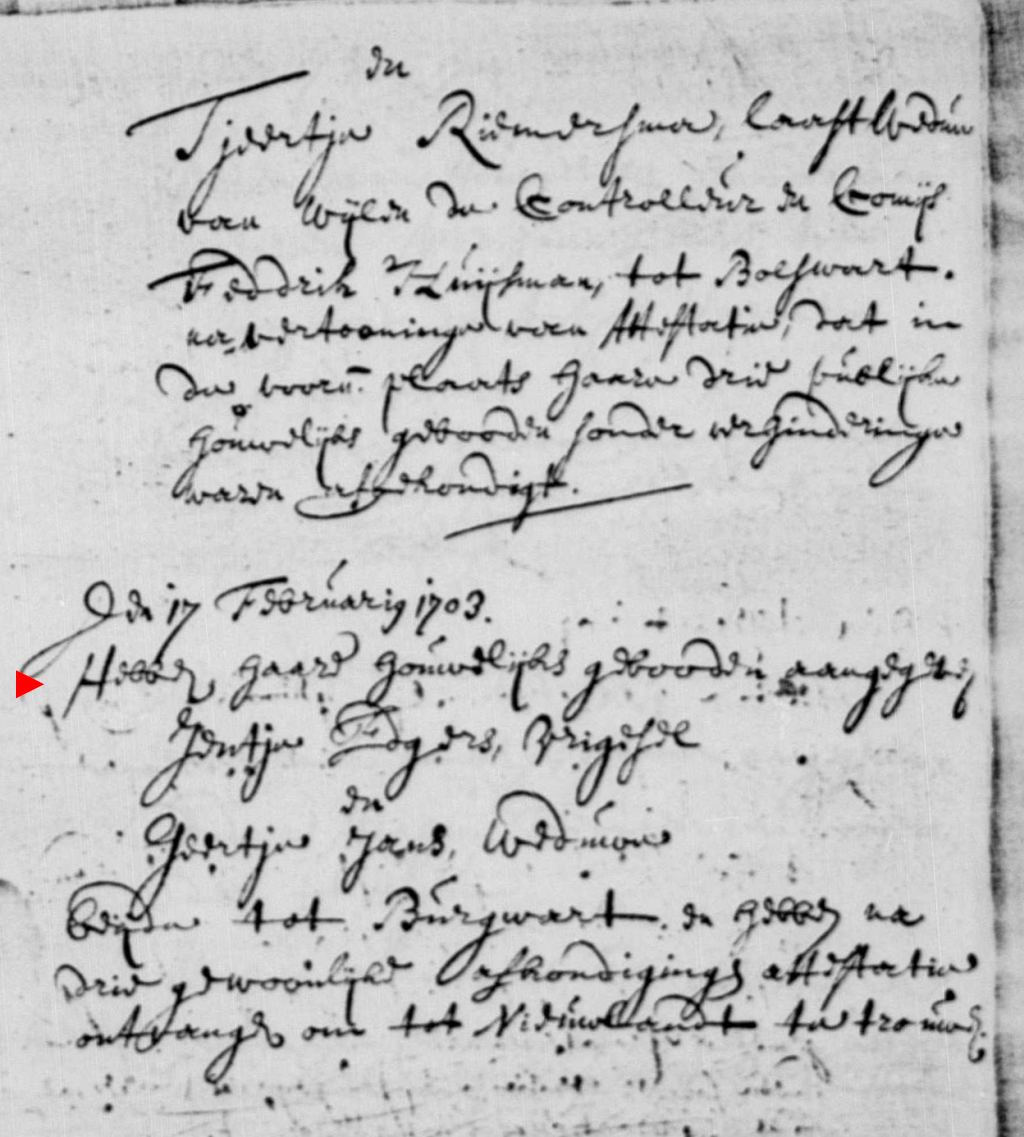 en
Tjeertje Riemersma, laast Weduw
van wijlen de Controlleur en Comijs
Feddrik Huijsman, tot Bolswart.
na vertooninge van Attestatie, dat in
de voorn. plaats haare drie publijke
houwelijks gebooden sonder verhinderinge
waren afgekondigt.
Den 17 Februarij 1703.
Hebben haare houwelijks gebooden aangegeven
Jentje Edgers, vrigesel
en
Geertje Jans, Weduwe
beijde tot Burgwart en hebben na
drie gewoonlijke afkondigingen attestatie
ontvangen om tot Nieuwlandt te trouwen.